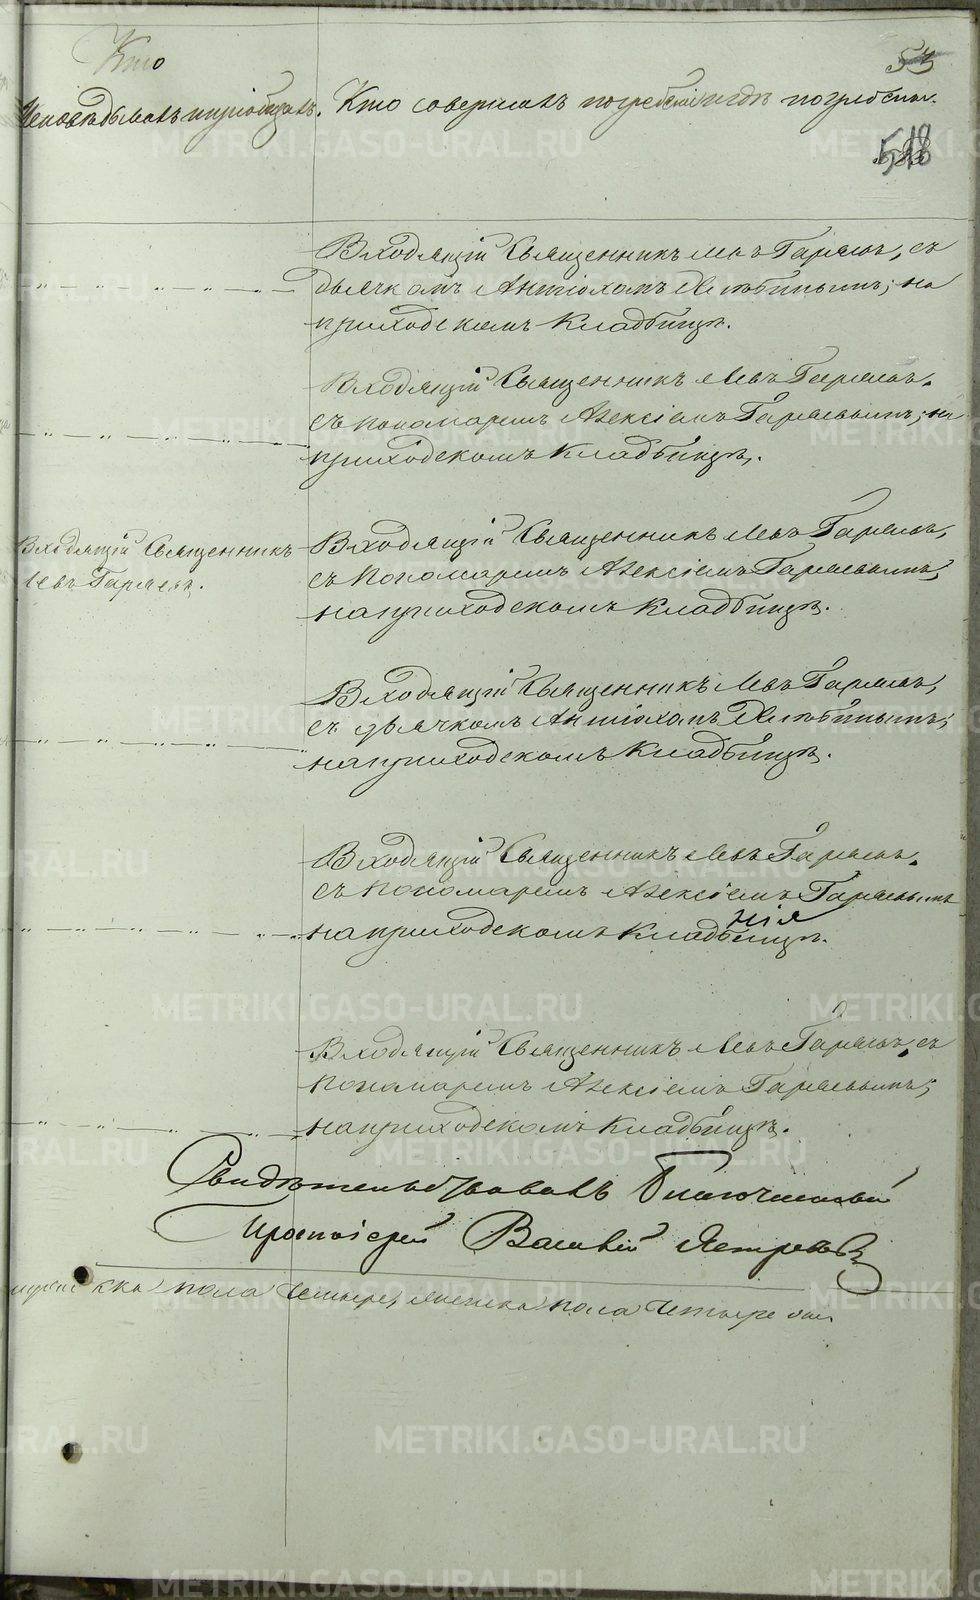 Кто
Исповѣдывалъ и пріобщалъ.
Кто совершалъ погребеніе и гдѣ погребены.
53
518
Входящій Священникъ Левъ Гаряевъ, съ
дьячкомъ Антіохомъ Хлопинымъ; на
приходскомъ Кладбищѣ.
Входящій Священникъ Левъ Гаряевъ,
съ пономаремъ Алексіемъ Гаряевымъ; на
приходскомъ Кладбищѣ.
Входящій Священникъ
Левъ Гаряевъ.
Входящій Священникъ Левъ Гаряевъ,
съ Пономаремъ Алексіемъ Гаряевымъ,
на приходскомъ Кладбищѣ.
Входящій Священникъ Левъ Гаряевъ,
съ дьячкомъ Антіохомъ Хлопинымъ;
на приходскомъ Кладбищѣ.
Входящій Священникъ Левъ Гаряевъ,
съ Пономаремъ Алексіемъ Гаряевымъ
на приходскомъ Кладбищѣ.
Входящій Священникъ Левъ Гаряевъ, съ
Пономаремъ Алексіемъ Гаряевымъ;
на приходскомъ Кладбищѣ.
Свидѣтельствовалъ Благочинный
Протоіерей Василій
пола четыре, женска пола четыре
METRIKI.GASO-URAL.RU